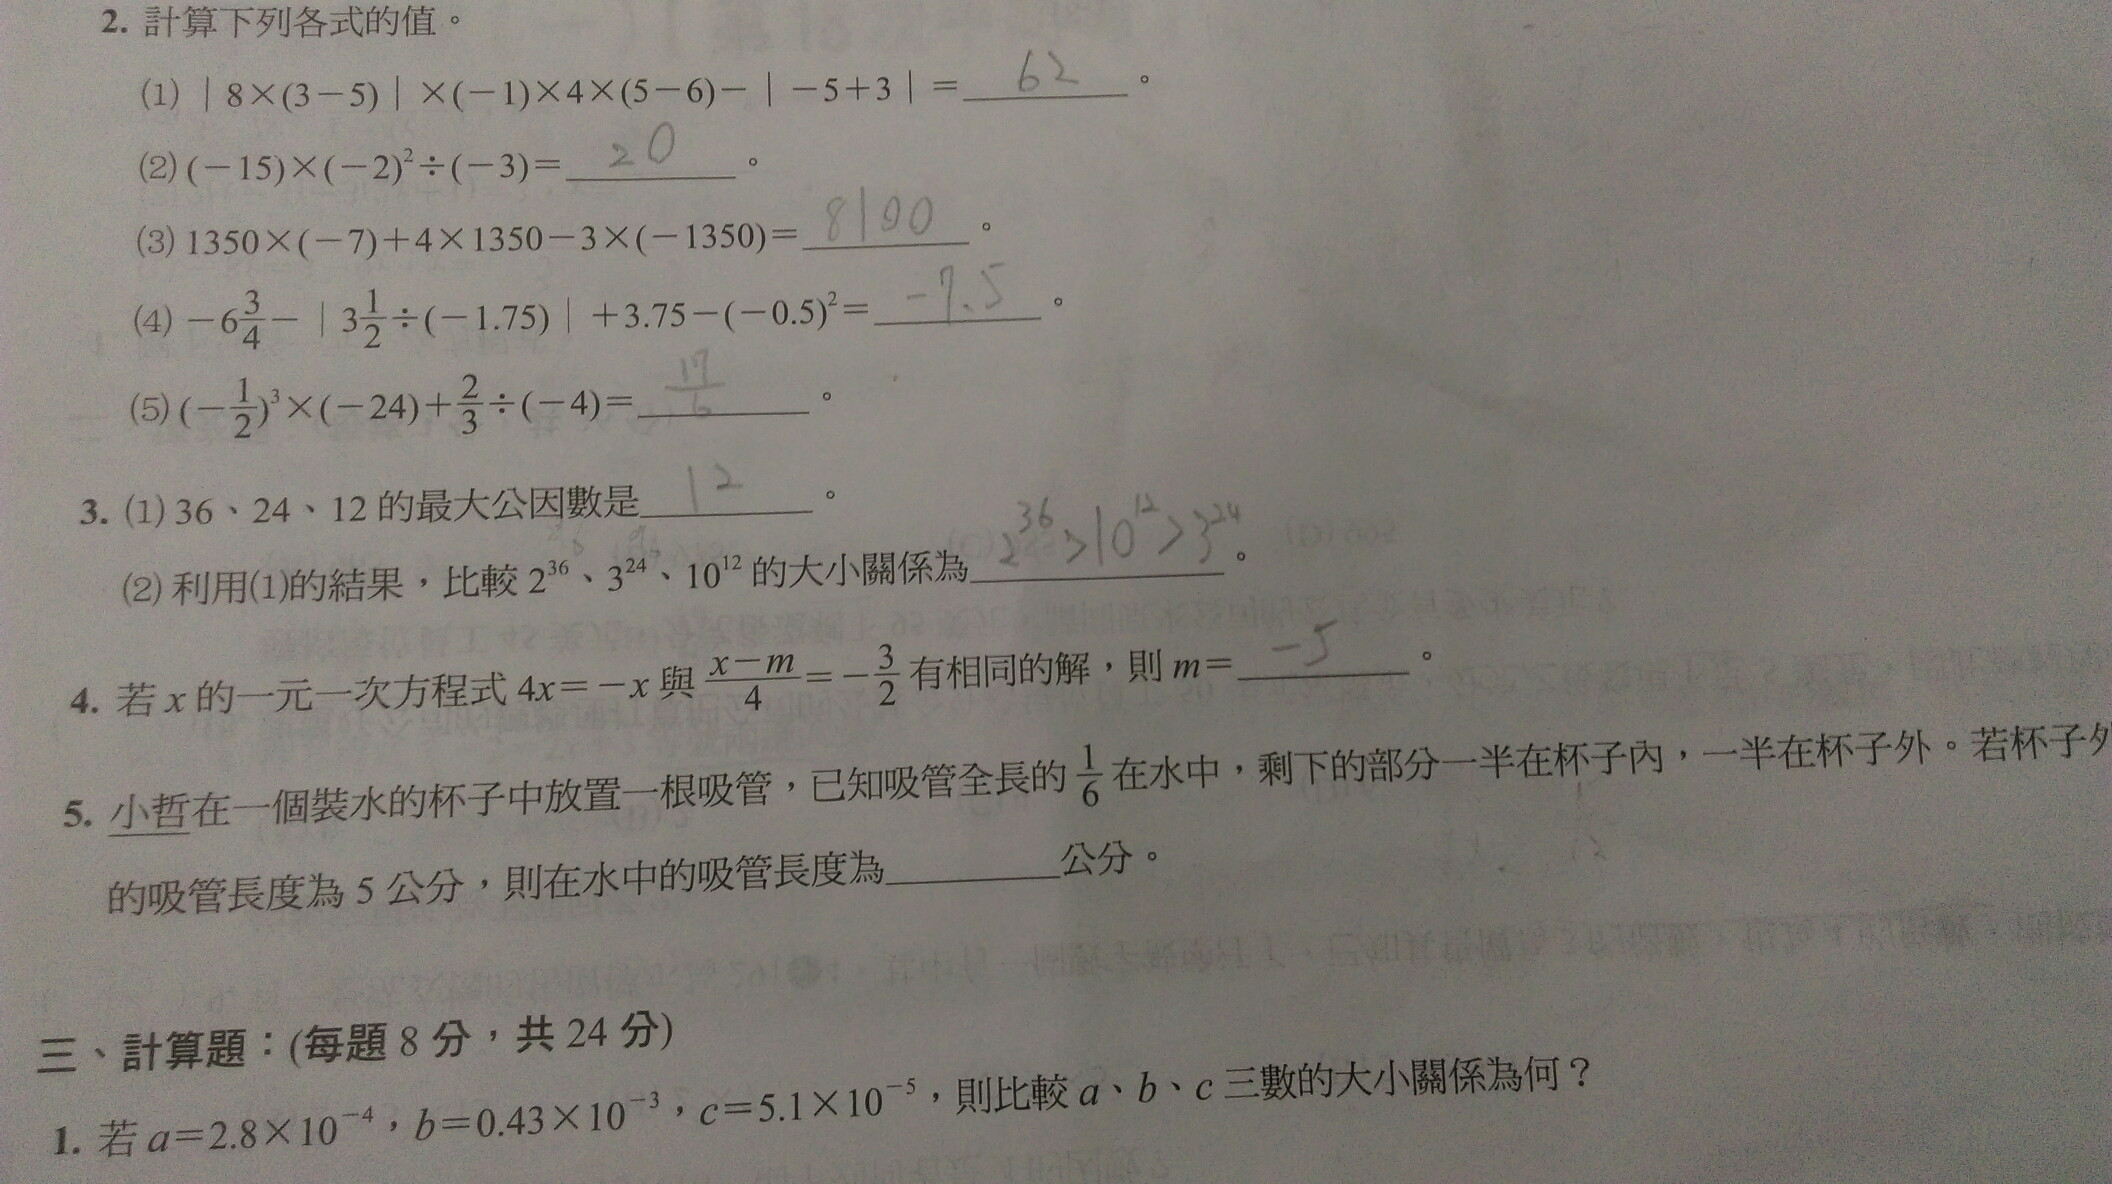 2. 計算下列各式的值。
(1) | 8×(3－5) | ×(－1)×4×(5－6)－ | －5＋3 | ＝ 62 。
(2) (－15)×(－2)²÷(－3)＝ 20 。
(3) 1350×(－7)＋4×1350－3×(－1350)＝ 8100 。
(4) －6 3/4－ | 3 1/2÷(－1.75) | ＋3.75－(－0.5)²＝ -7.5 。
(5) (－1/2)³×(－24)＋2/3÷(－4)＝ 17/6 。
3. (1) 36、24、12 的最大公因數是 12 。
(2) 利用(1)的結果，比較 2³⁶、3²⁴、10¹² 的大小關係為 2³⁶>10¹²>3²⁴ 。
4. 若 x 的一元一次方程式 4x＝－x 與 (x－m)/4＝－3/2 有相同的解，則 m＝ -5 。
5. 小哲在一個裝水的杯子中放置一根吸管，已知吸管全長的 1/6 在水中，剩下的部分一半在杯子內，一半在杯子外。若杯子外
的吸管長度為 5 公分，則在水中的吸管長度為 公分。
三、計算題：(每題 8 分，共 24 分)
1. 若 a＝2.8×10⁻⁴，b＝0.43×10⁻³，c＝5.1×10⁻⁵，則比較 a、b、c 三數的大小關係為何？